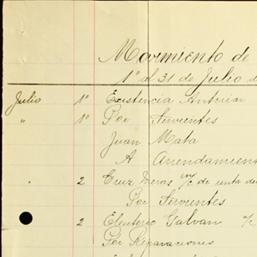 Movimiento de
1º al 31 de Julio d
Julio 1º Existencia Anterior
" 1º Por Sirvientes
Juan Mata
A Arrendamien
" 2 Cruz m/c de renta de
Por Sirvientes
" 2 Eleuterio Galvan
Por Reparaciones